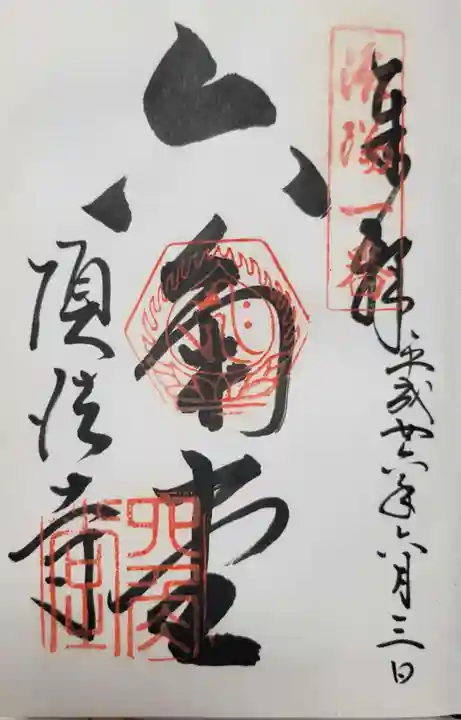 奉拝
洛陽一番
平成廿六年六月三日
六角堂
頂法寺